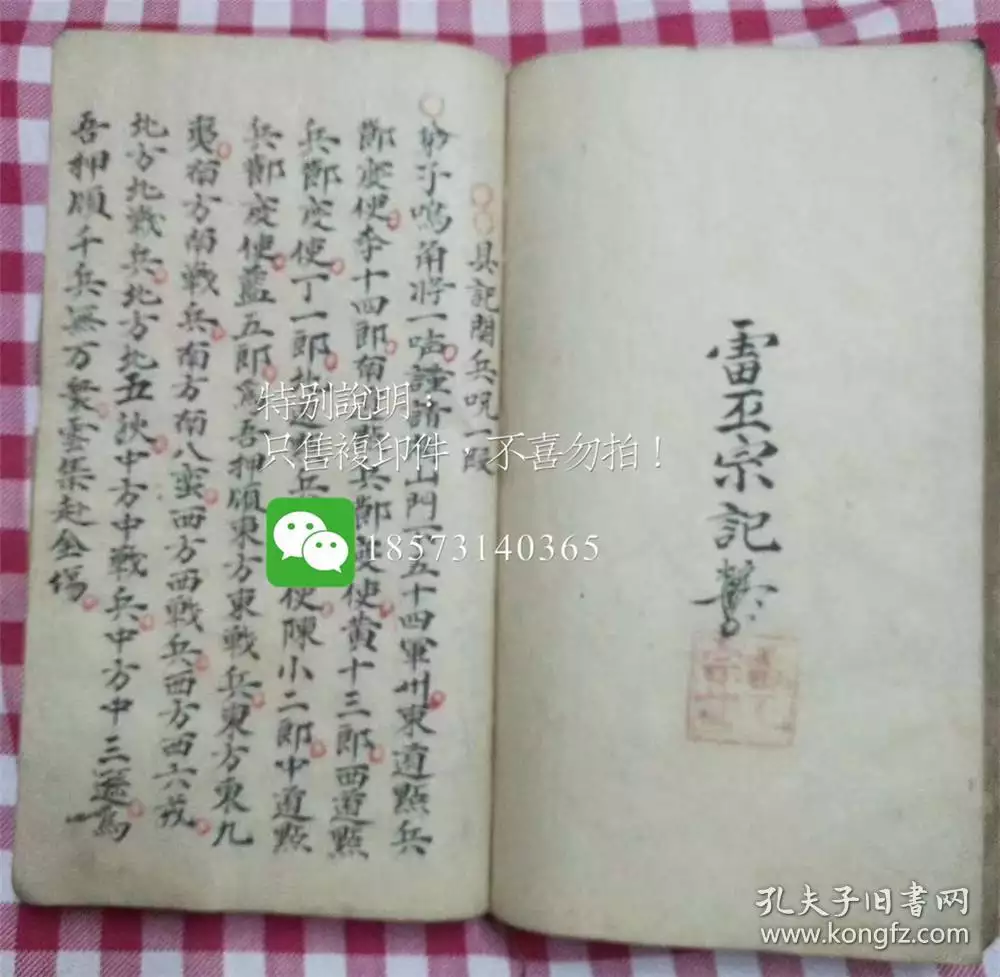 雷丕宗記
具記閱兵呪一段
鳴角將一声謹請山門下五十四軍州東道點兵
節度使李十四郎南兵節度使黃十三郎西道點
兵節度使丁一郎道兵使陳小二郎中道點
兵節度使藍五郎為吾押願東方東戰兵東方東九
夷南方南戰兵南方南八蛮西方西戰兵西方西六戎
北方北戰兵北方北五狄中方中戰兵中方中三為
吾押願千兵万雲集赴金場
特别說明：
只售複印件，不喜勿拍！
18573140365
孔夫子旧書网
www.kongfz.com